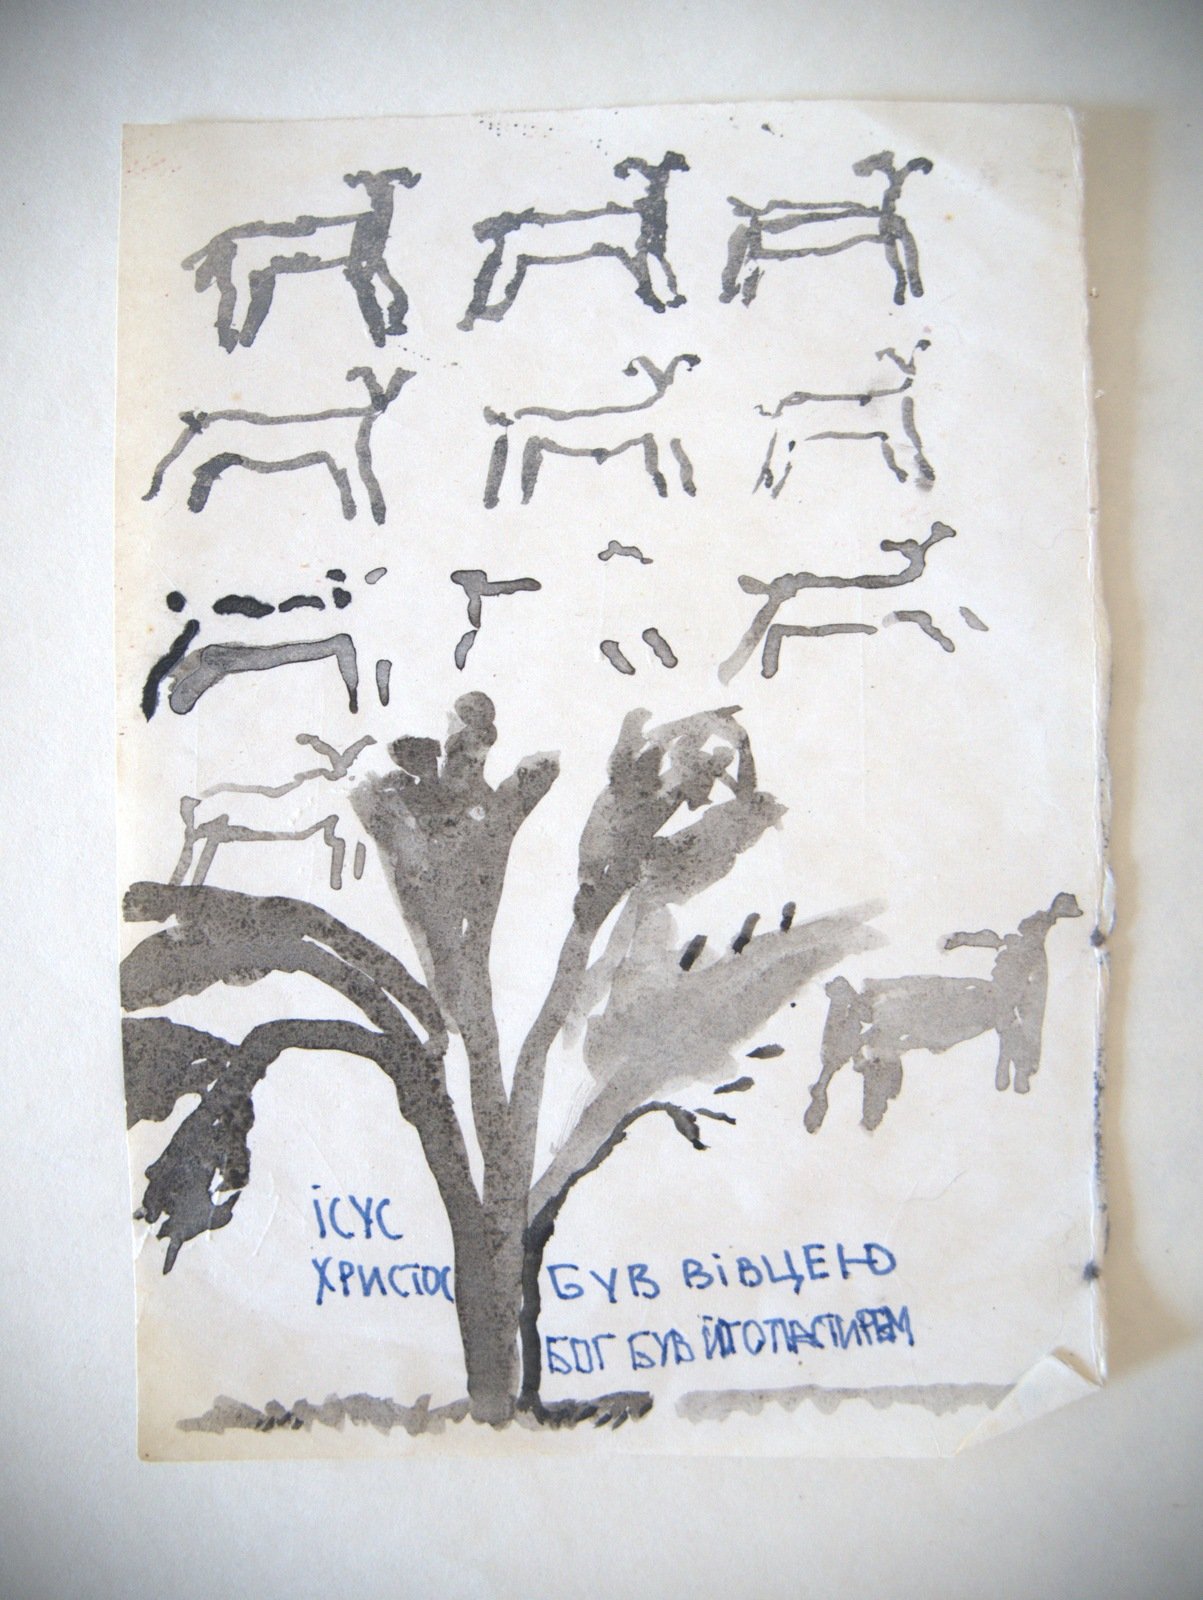 ІСУС
ХРИСТОС
БУВ ВІВЦЕЮ
БОГ БУВ ЙОГО ПАСТИРЕМ